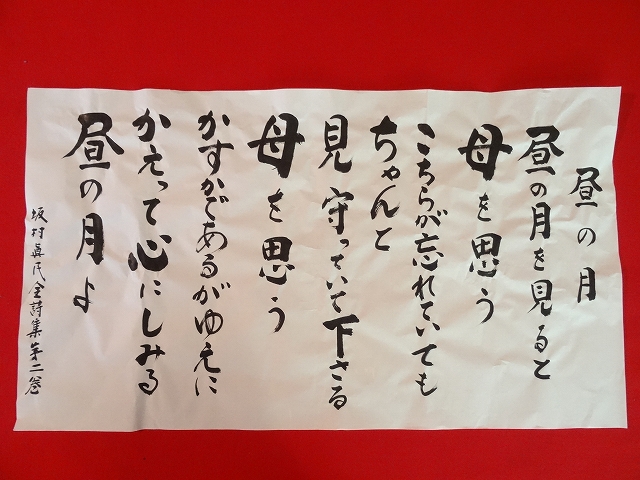 昼の月
昼の月を見ると
母を思う
こちらが忘れていても
ちゃんと
見守っていて下さる
母を思う
かすかであるがゆえに
かえって心にしみる
昼の月よ
坂村真民全詩集第二巻